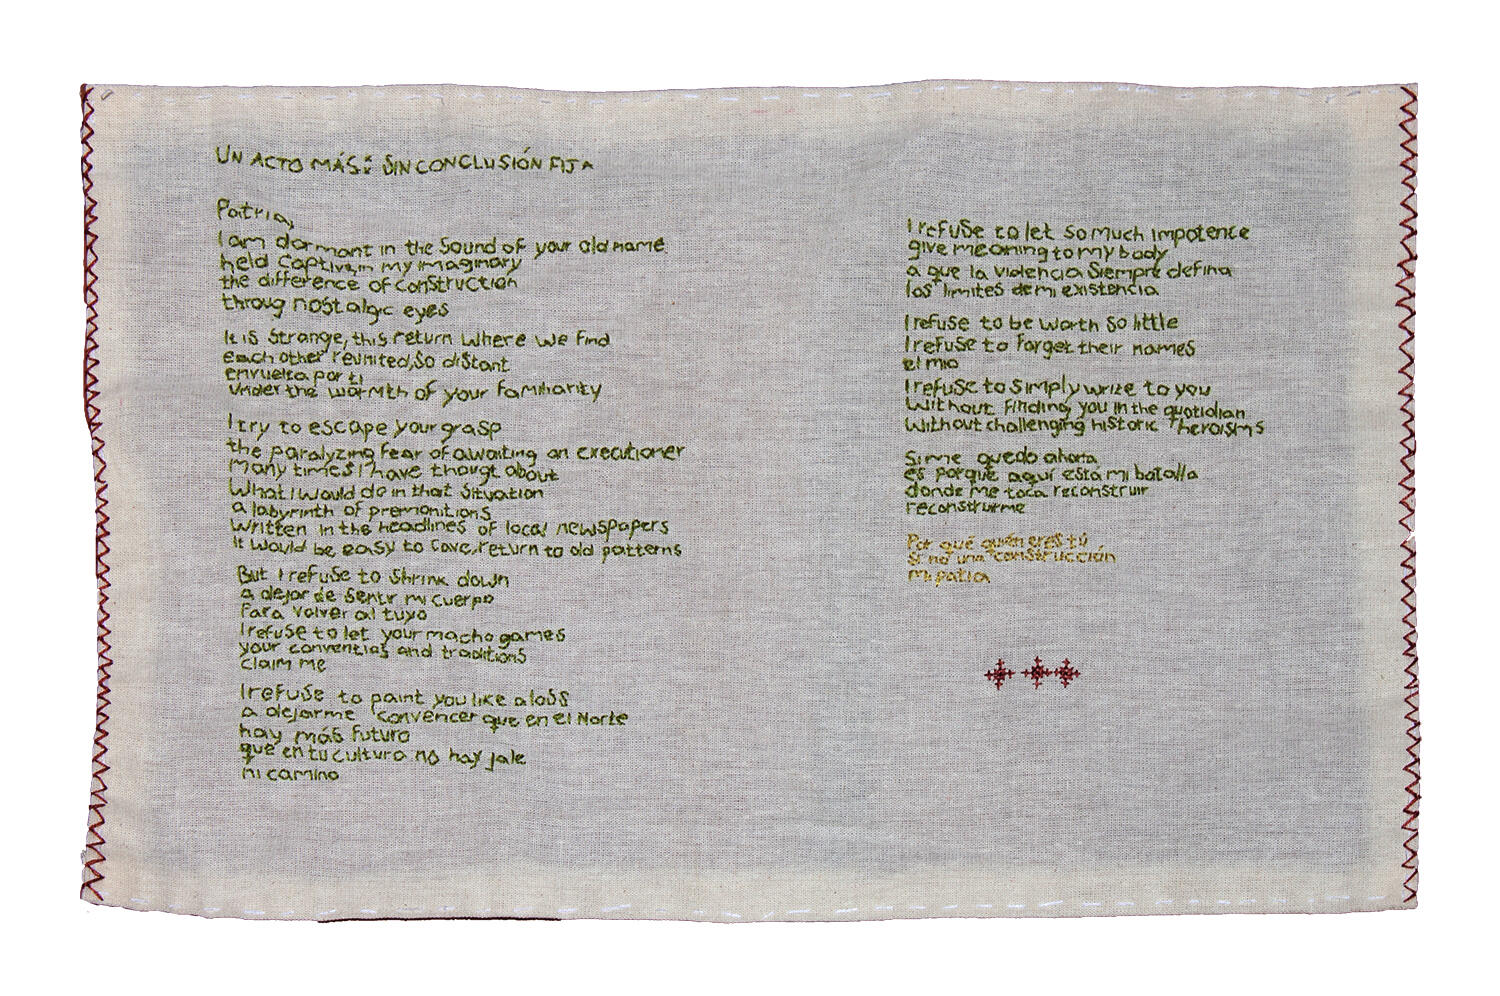 UN ACTO MÁS: SIN CONCLUSIÓN FIJA
Patria,
I am dormant in the sound of your old name
held captive, in my imaginary
the difference of construction
throug nostalgic eyes
It is strange, this return where we find
each other reunited, so distant
envuelta por ti
under the warmth of your familiarity
I try to escape your grasp
the paralyzing fear of awaiting an executioner
many times I have thougt about
what I would do in that situation
a labyrinth of premonitions
written in the headlines of local newspapers
it would be easy to cave, return to old patterns
But I refuse to shrink down
a dejar de sentir mi cuerpo
para volver al tuyo
I refuse to let your macho games
your conventias and traditions
claim me
I refuse to paint you like a loss
a dejarme convencer que en el Norte
hay más futuro
que en tu cultura no hay jale
ni camino
I refuse to let so much impotence
give meaning to my body
a que la violencia siempre defina
los limites de mi existencia
I refuse to be worth so little
I refuse to forget their names
el mio
I refuse to simply write to you
without finding you in the quotidian
without challenging historic heroisms
Si me quedo ahora
es porque aquí está mi batalla
donde me toca reconstruir
reconstruirme
Por qué quién eres tú
si no una construcción
mi patria